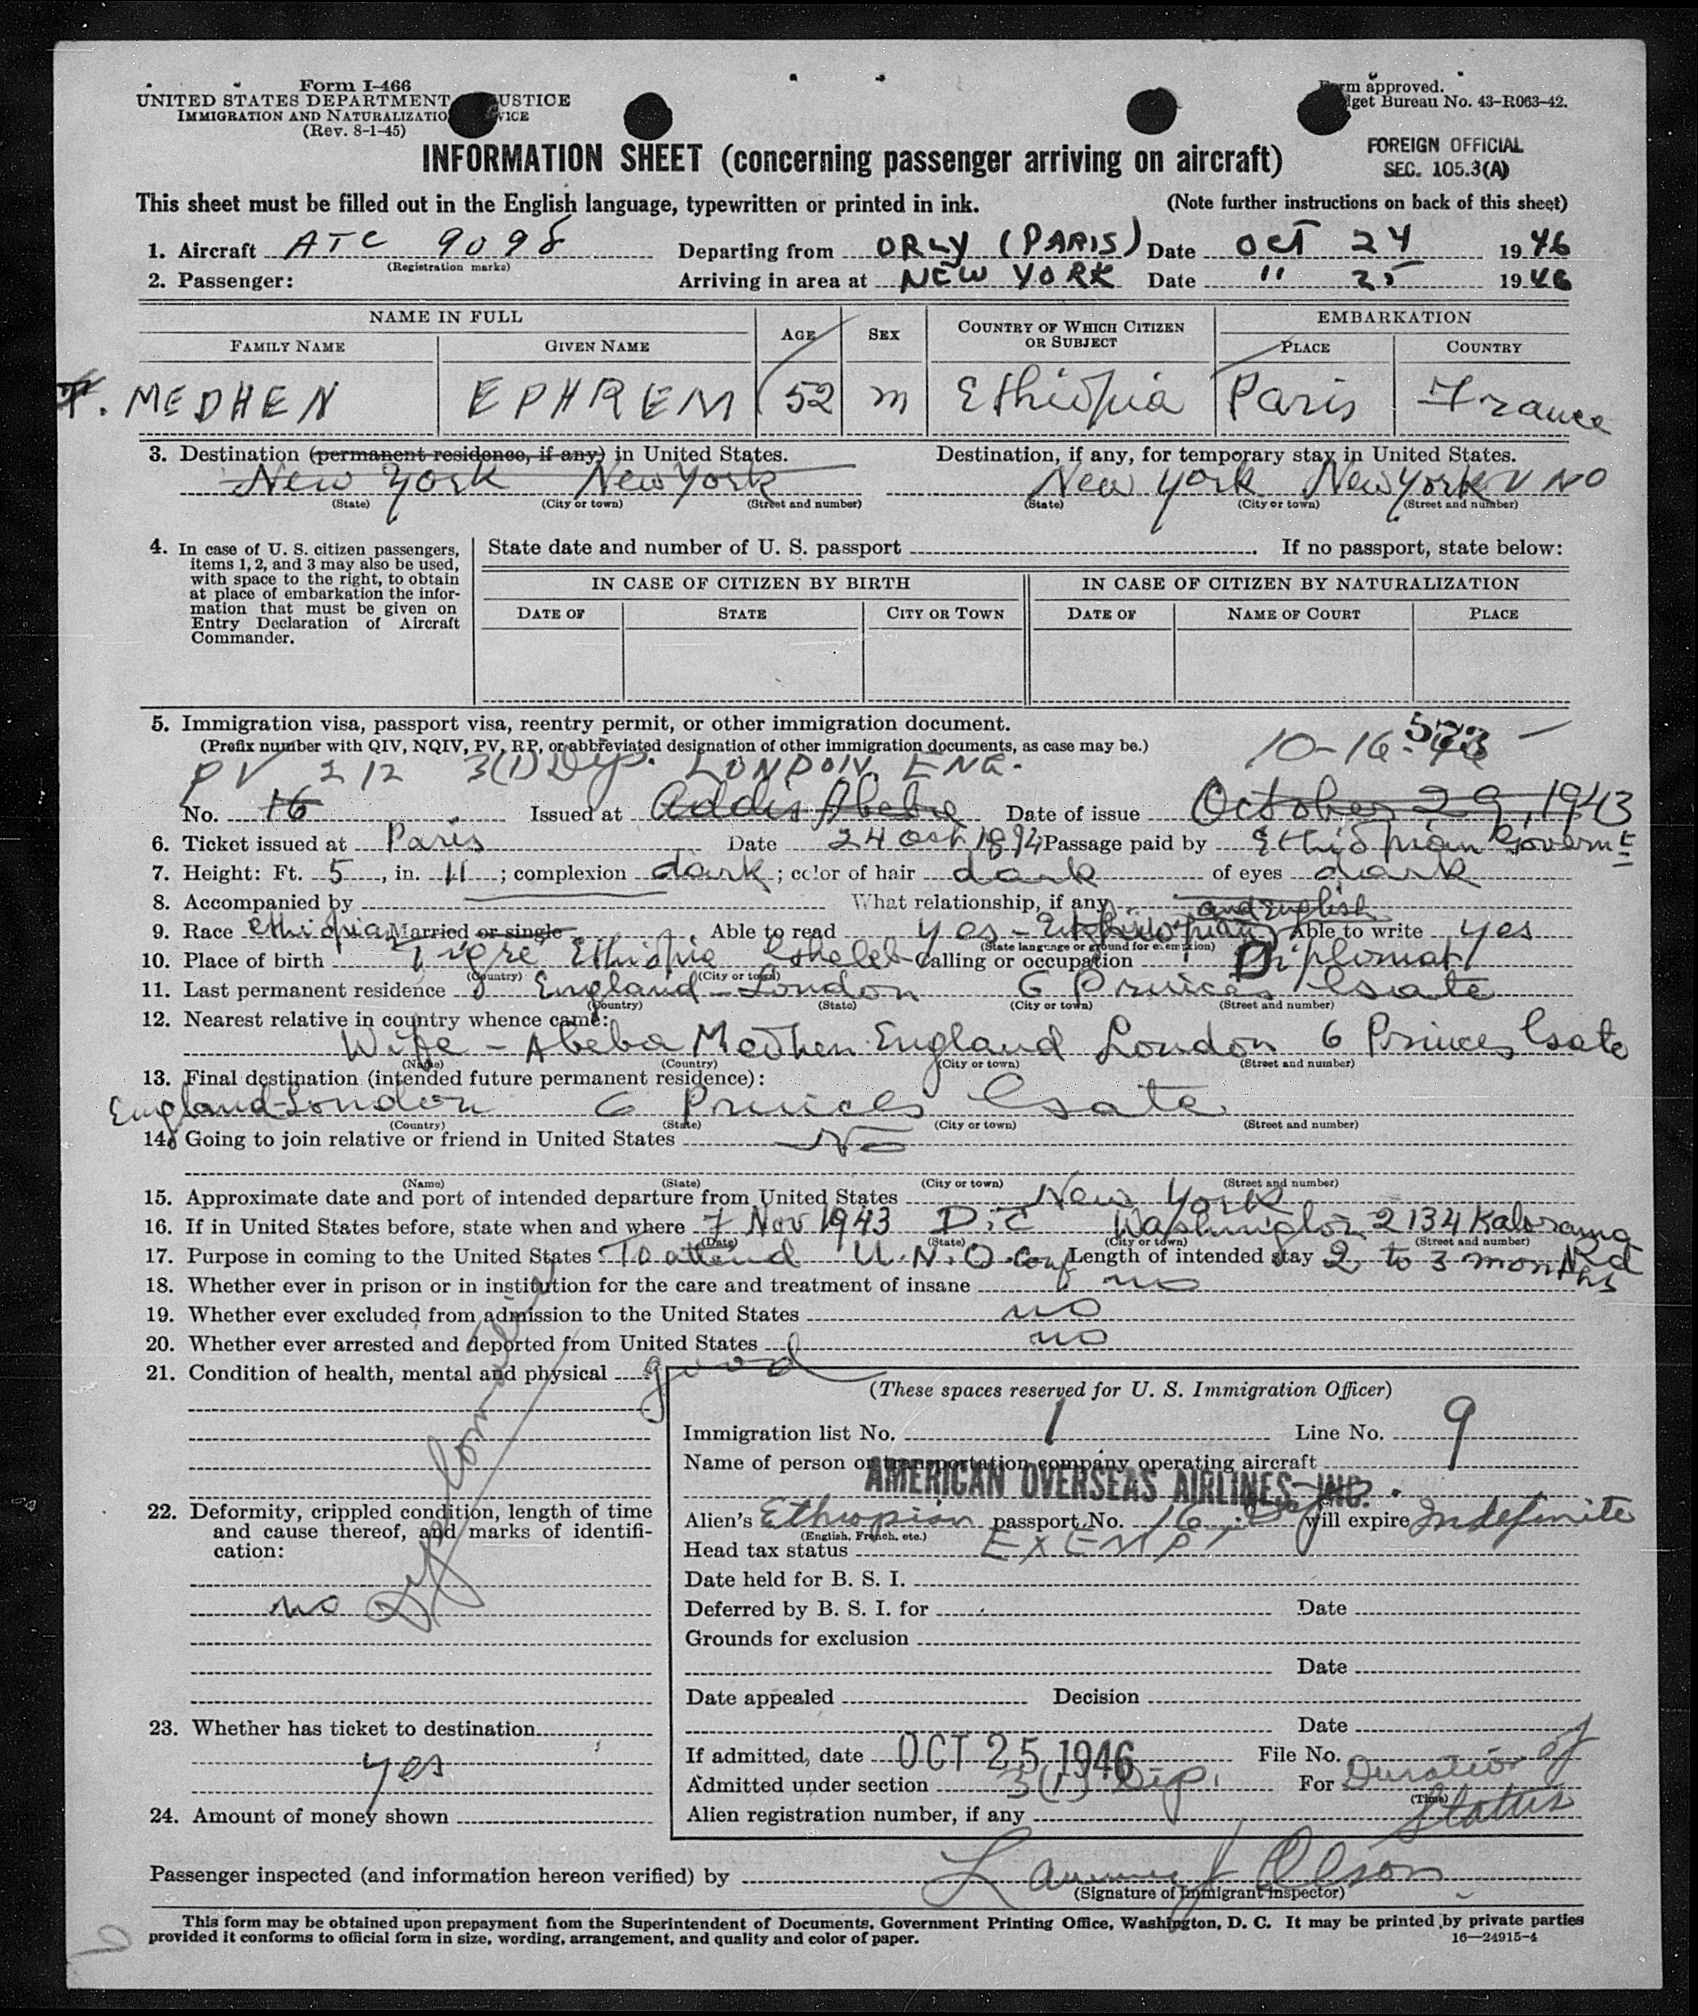 Form I-466
UNITED STATES DEPARTMENT USTICE
IMMIGRATION AND NATURALIZATIO VICE
(Rev. 8-1-45)
rm approved.
dget Bureau No. 43-R063-42.
INFORMATION SHEET (concerning passenger arriving on aircraft)
FOREIGN OFFICIAL
SEC. 105.3(A)
This sheet must be filled out in the English language, typewritten or printed in ink. (Note further instructions on back of this sheet)
1. Aircraft ATC 9098 Departing from ORLY (PARIS) Date OCT 24 1946
(Registration marks)
2. Passenger: Arriving in area at NEW YORK Date " 25 1946
NAME IN FULL AGE SEX COUNTRY OF WHICH CITIZEN OR SUBJECT EMBARKATION
FAMILY NAME GIVEN NAME PLACE COUNTRY
T. MEDHEN EPHREM 52 m Ethiopia Paris France
3. Destination (permanent residence, if any) in United States. Destination, if any, for temporary stay in United States.
New York New York New York New York UNO
(State) (City or town) (Street and number) (State) (City or town) (Street and number)
4. In case of U. S. citizen passengers, items 1, 2, and 3 may also be used, with space to the right, to obtain at place of embarkation the information that must be given on Entry Declaration of Aircraft Commander.
State date and number of U. S. passport . If no passport, state below:
IN CASE OF CITIZEN BY BIRTH IN CASE OF CITIZEN BY NATURALIZATION
DATE OF STATE CITY OR TOWN DATE OF NAME OF COURT PLACE
5. Immigration visa, passport visa, reentry permit, or other immigration document.
(Prefix number with QIV, NQIV, PV, RP, or abbreviated designation of other immigration documents, as case may be.) 10-16-46
PV 212 3(1) Dip. LONDON, ENG.
No. 16 Issued at Addis Abeba Date of issue October 29, 1943
6. Ticket issued at Paris Date 24 Oct Passage paid by Ethiopian Governt
7. Height: Ft. 5, in. 11; complexion dark; color of hair dark of eyes dark
8. Accompanied by What relationship, if any
and english
9. Race ethiopian Married or single Able to read yes - Ethiopian Able to write yes
(State language or ground for exemption)
10. Place of birth Tigre Ethiopia Calling or occupation Diplomat
(Country) (City or town)
11. Last permanent residence England - London 6 Princes Gate
(Country) (State) (City or town) (Street and number)
12. Nearest relative in country whence came:
Wife - Abeba Medhen England London 6 Princes Gate
(Name) (Country) (City or town) (Street and number)
13. Final destination (intended future permanent residence):
England-London 6 Princes Gate
(Country) (State) (City or town) (Street and number)
14. Going to join relative or friend in United States No
(Name) (State) (City or town) (Street and number)
15. Approximate date and port of intended departure from United States New York
16. If in United States before, state when and where 7 Nov 1943 D.C Washington 2134 Kalorama Rd
(Date) (State) (City or town) (Street and number)
17. Purpose in coming to the United States To attend U.N.O. Conf Length of intended stay 2 to 3 months
18. Whether ever in prison or in institution for the care and treatment of insane no
19. Whether ever excluded from admission to the United States no
20. Whether ever arrested and deported from United States no
21. Condition of health, mental and physical good
(These spaces reserved for U. S. Immigration Officer)
Immigration list No. 1 Line No. 9
Name of person or transportation company operating aircraft
AMERICAN OVERSEAS AIRLINES, INC.
22. Deformity, crippled condition, length of time and cause thereof, and marks of identification:
no
Alien's Ethiopian passport No. 16 will expire Indefinite
(English, French, etc.)
Head tax status EXEMPT
Date held for B. S. I.
Deferred by B. S. I. for Date
Grounds for exclusion
Date
Date appealed Decision
Date
23. Whether has ticket to destination
yes
If admitted, date OCT 25 1946 File No.
Admitted under section 3(1) Dip. For Duration of Status
(Time)
24. Amount of money shown
Alien registration number, if any
Passenger inspected (and information hereon verified) by Olson
(Signature of Immigrant Inspector)
This form may be obtained upon prepayment from the Superintendent of Documents, Government Printing Office, Washington, D. C. It may be printed by private parties
provided it conforms to official form in size, wording, arrangement, and quality and color of paper. 16—24915-4